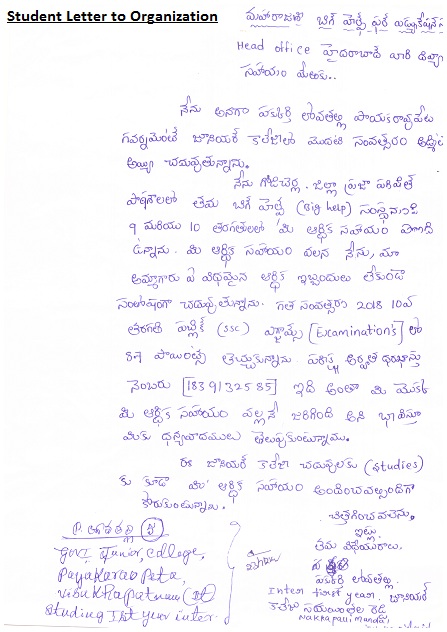 Student Letter to Organization
మహారాజశ్రీ బిగ్ హెల్ప్ ఫర్ ఎడ్యుకేషన్
Head office హైదరాబాద్ వారి దివ్య
సహాయం
నేను అనగా లోవతల్లి పాయకరావుపేట
గవర్నమెంట్ జూనియర్ కాలేజిలో మొదటి సంవత్సరం
చదువుతున్నాను.
నేను జిల్లా ప్రజా పరిషత్
పాఠశాలలో తమ బిగ్ హెల్ప్ (Big help)
9 మరియు 10 తరగతులలో మీ ఆర్థిక సహాయం పొంది
ఉన్నాను. మీ ఆర్థిక సహాయం వలన నేను, మా
అమ్మగారు ఏ విధమైన ఆర్థిక ఇబ్బందులు లేకుండా
సంతోషంగా చదువుతున్నాను. గత సంవత్సరం 2018 10వ
తరగతి పబ్లిక్ (SSC) ఎగ్జామ్స్ [Examination's] లో
8.7 పాయింట్స్ తెచ్చుకున్నాను.
నెంబరు [1839132585] ఇది అంతా మీ
మీ ఆర్థిక సహాయం వల్లనే జరిగింది అని భావిస్తూ
మీకు ధన్యవాదములు తెలుపుకుంటున్నాము.
ఈ జూనియర్ కాలేజి చదువులకు (studies)
కు కూడా మీ ఆర్థిక సహాయం అందించవలసిందిగా
కోరుకుంటున్నాను.
చిత్తగించవలెను.
ఇట్లు
తమ విధేయురాలు.
లోవతల్లి.
Inter first year. జూనియర్
కాలేజి
Nakkapalli mandal,
P. లోవతల్లి
Govt Junior, college,
Payakarao peta,
Visukhapatnam
Studing Ist year inter.